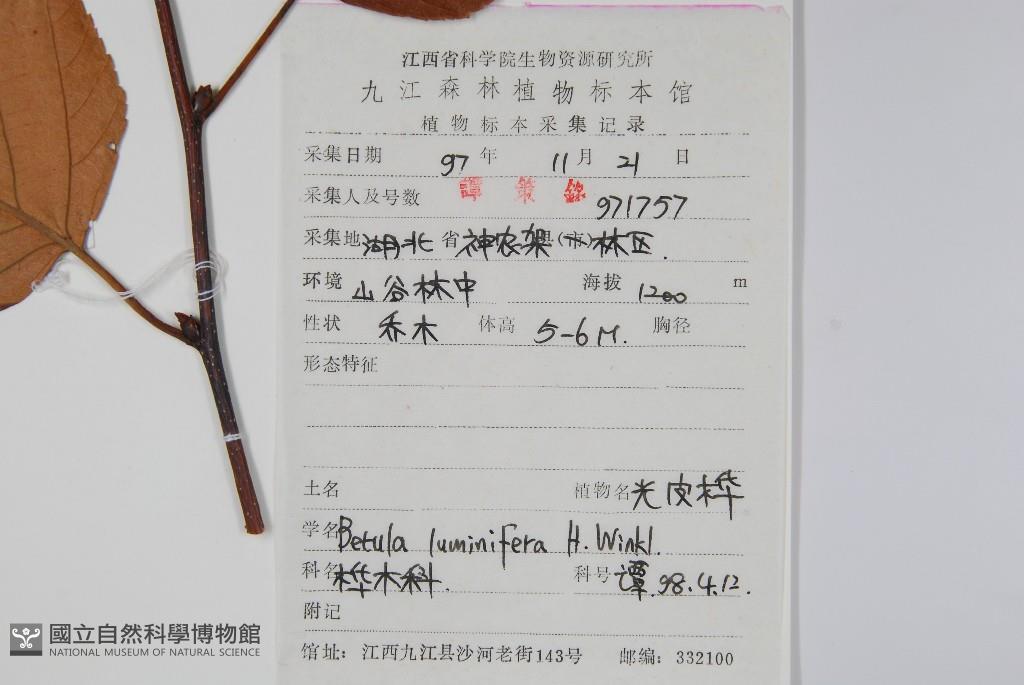 江西省科学院生物资源研究所
九江森林植物标本馆
植物标本采集记录
采集日期 97 年 11 月 21 日
采集人及号数 譚策銘 971757
采集地 湖北 省 神农架 县(市) 林区.
环境 山谷林中 海拔 1200 m
性状 乔木 体高 5-6M. 胸径
形态特征
土名 植物名 光皮桦
学名 Betula luminifera H. Winkl.
科名 桦木科. 科号 谭.98.4.12.
附记
馆址: 江西九江县沙河老街143号 邮编: 332100
國立自然科學博物館
NATIONAL MUSEUM OF NATURAL SCIENCE